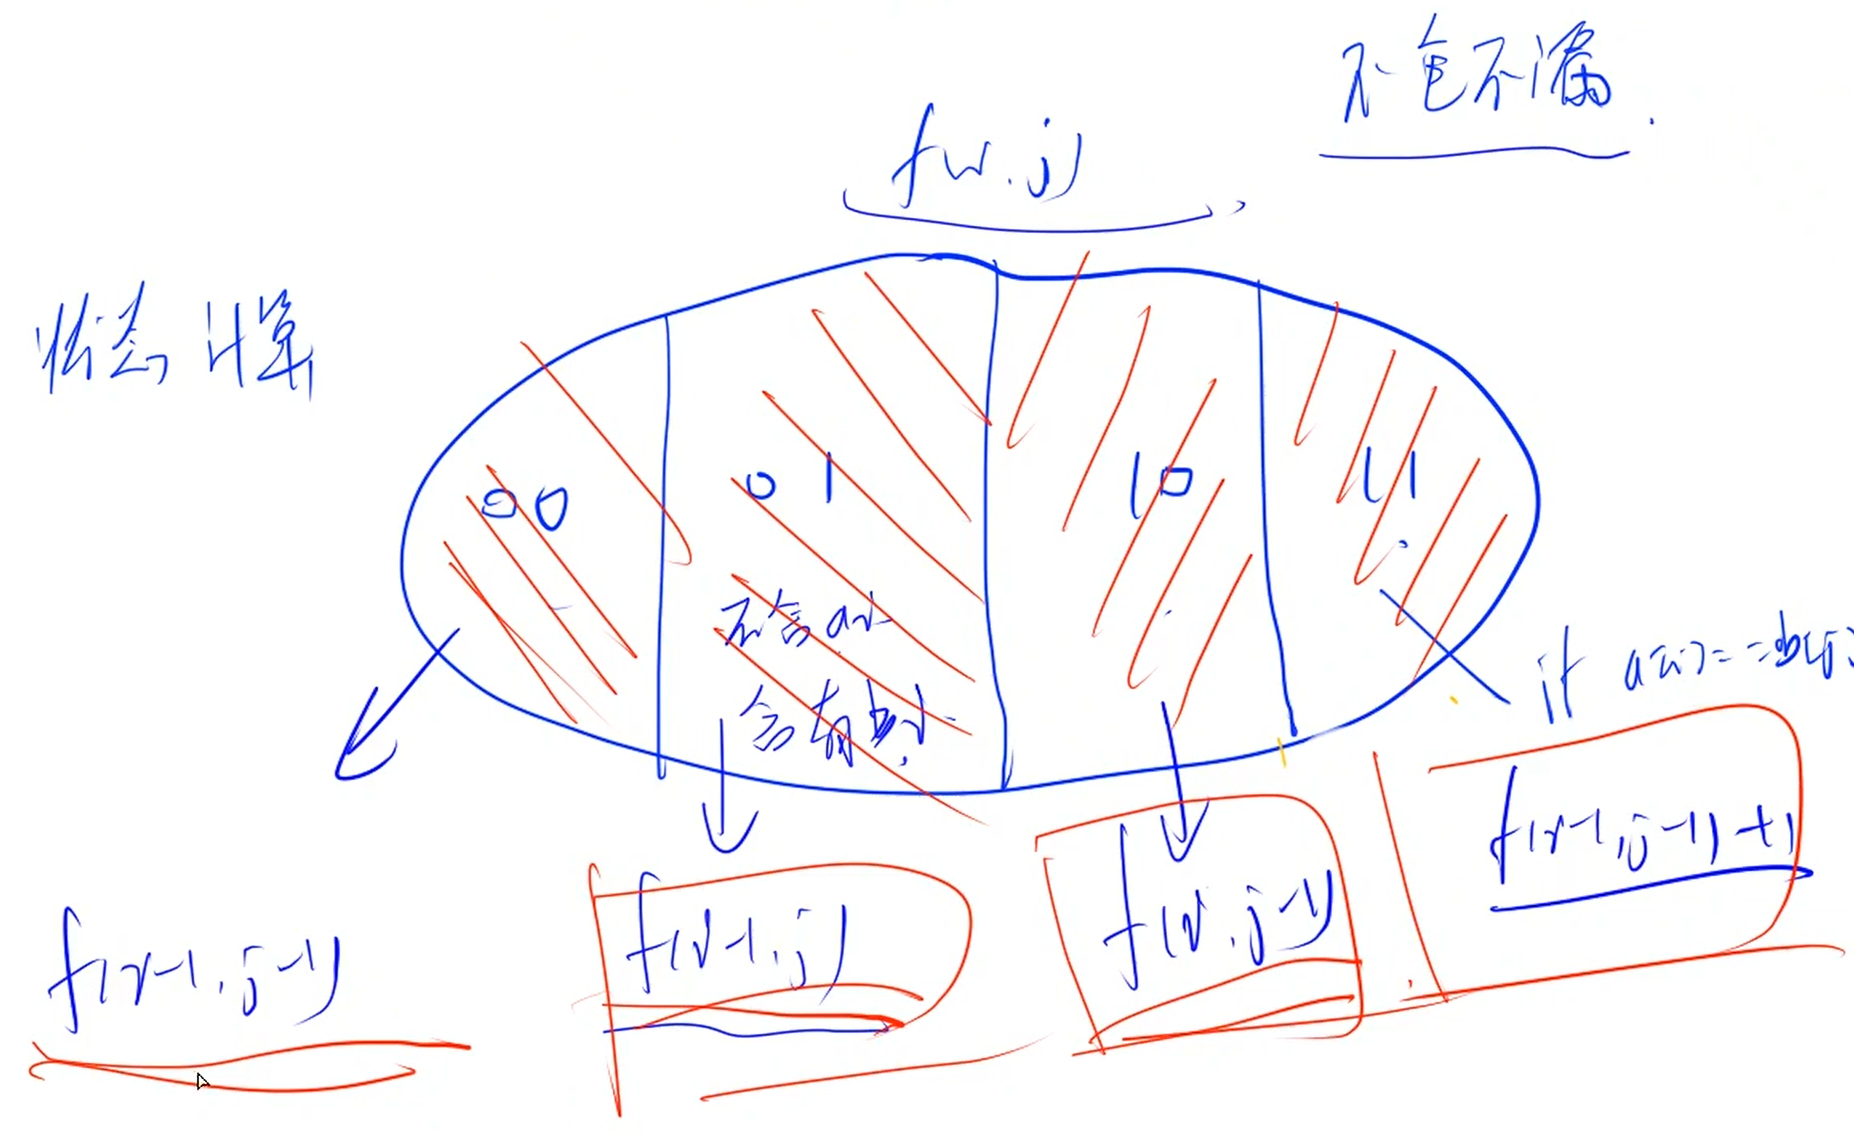 不包不漏.
f(i.j)
状态计算
00
01
10
11
不含ai
含有bj.
if a[i]==b[j]
f(i-1,j-1)+1
f(i-1.j)
f(i.j-1)
f(i-1.j-1)